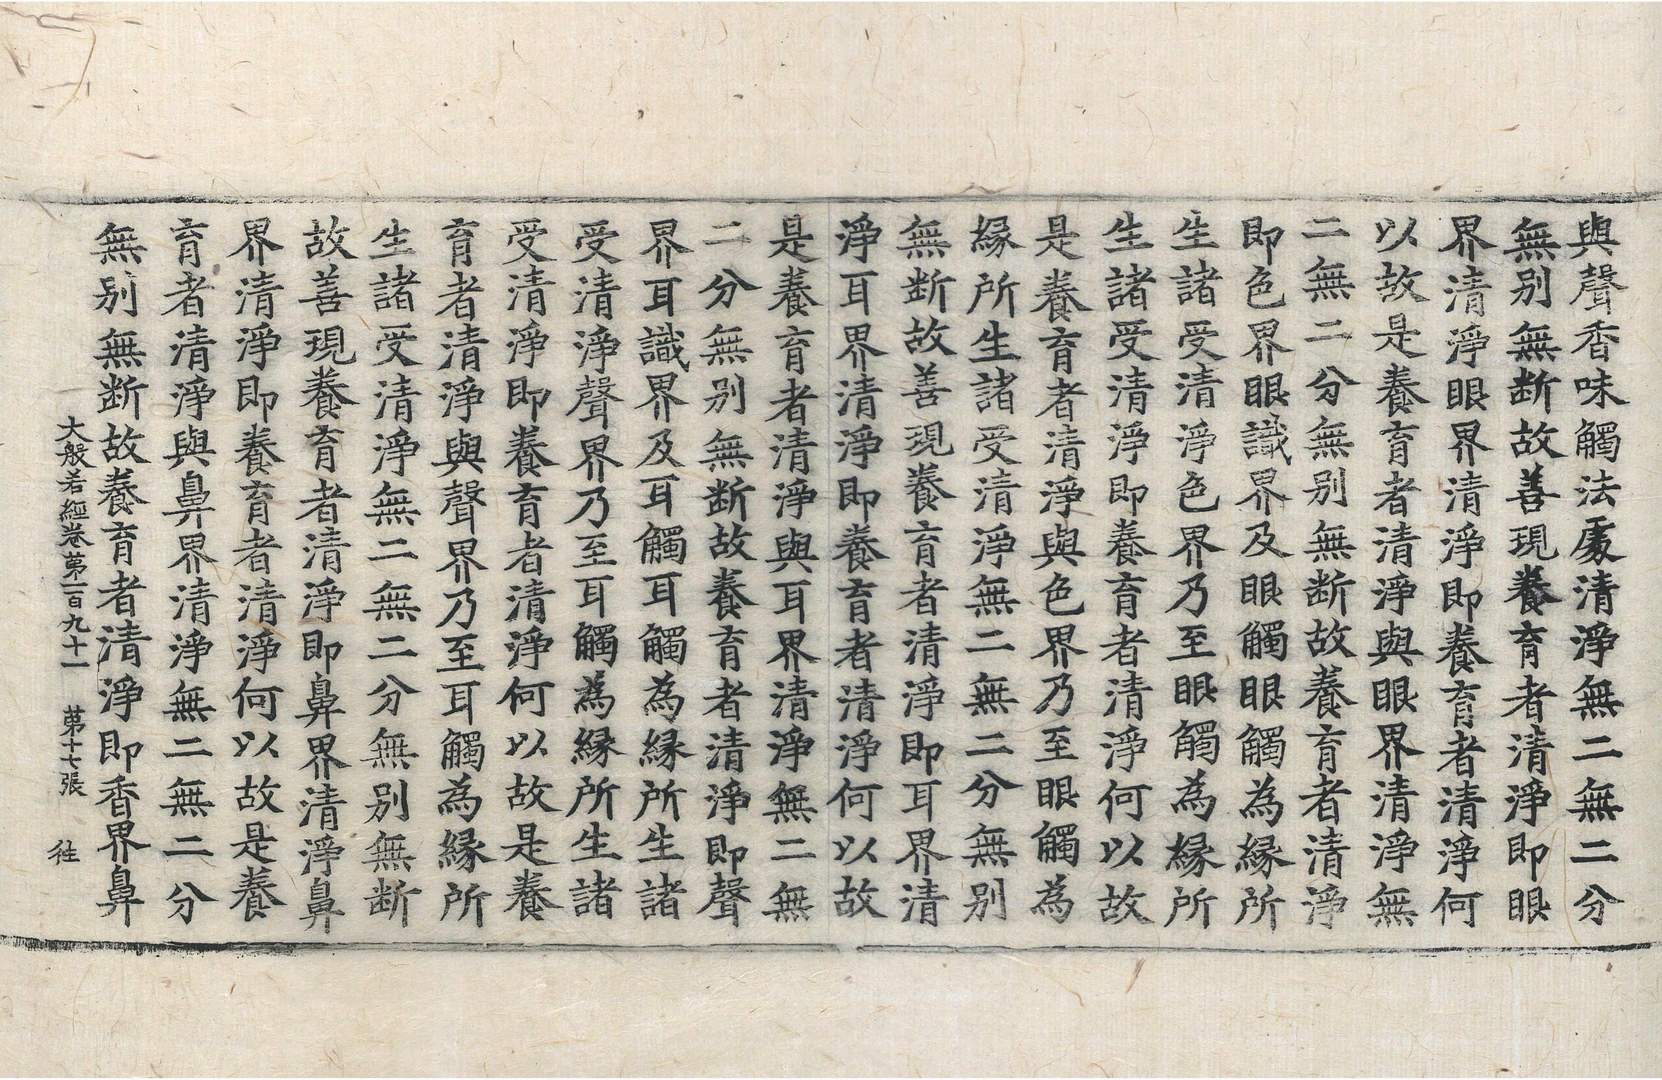 與聲香味觸法處清淨無二無二分
無別無斷故善現養育者清淨即眼
界清淨眼界清淨即養育者清淨何
以故是養育者清淨與眼界清淨無
二無二分無別無斷故養育者清淨
即色界眼識界及眼觸眼觸為緣所
生諸受清淨色界乃至眼觸為緣所
生諸受清淨即養育者清淨何以故
是養育者清淨與色界乃至眼觸為
緣所生諸受清淨無二無二分無別
無斷故善現養育者清淨即耳界清
淨耳界清淨即養育者清淨何以故
是養育者清淨與耳界清淨無二無
二分無別無斷故養育者清淨即聲
界耳識界及耳觸耳觸為緣所生諸
受清淨聲界乃至耳觸為緣所生諸
受清淨即養育者清淨何以故是養
育者清淨與聲界乃至耳觸為緣所
生諸受清淨無二無二分無別無斷
故善現養育者清淨即鼻界清淨鼻
界清淨即養育者清淨何以故是養
育者清淨與鼻界清淨無二無二分
無別無斷故養育者清淨即香界鼻
大般若經卷第一百九十一 第十七張 往